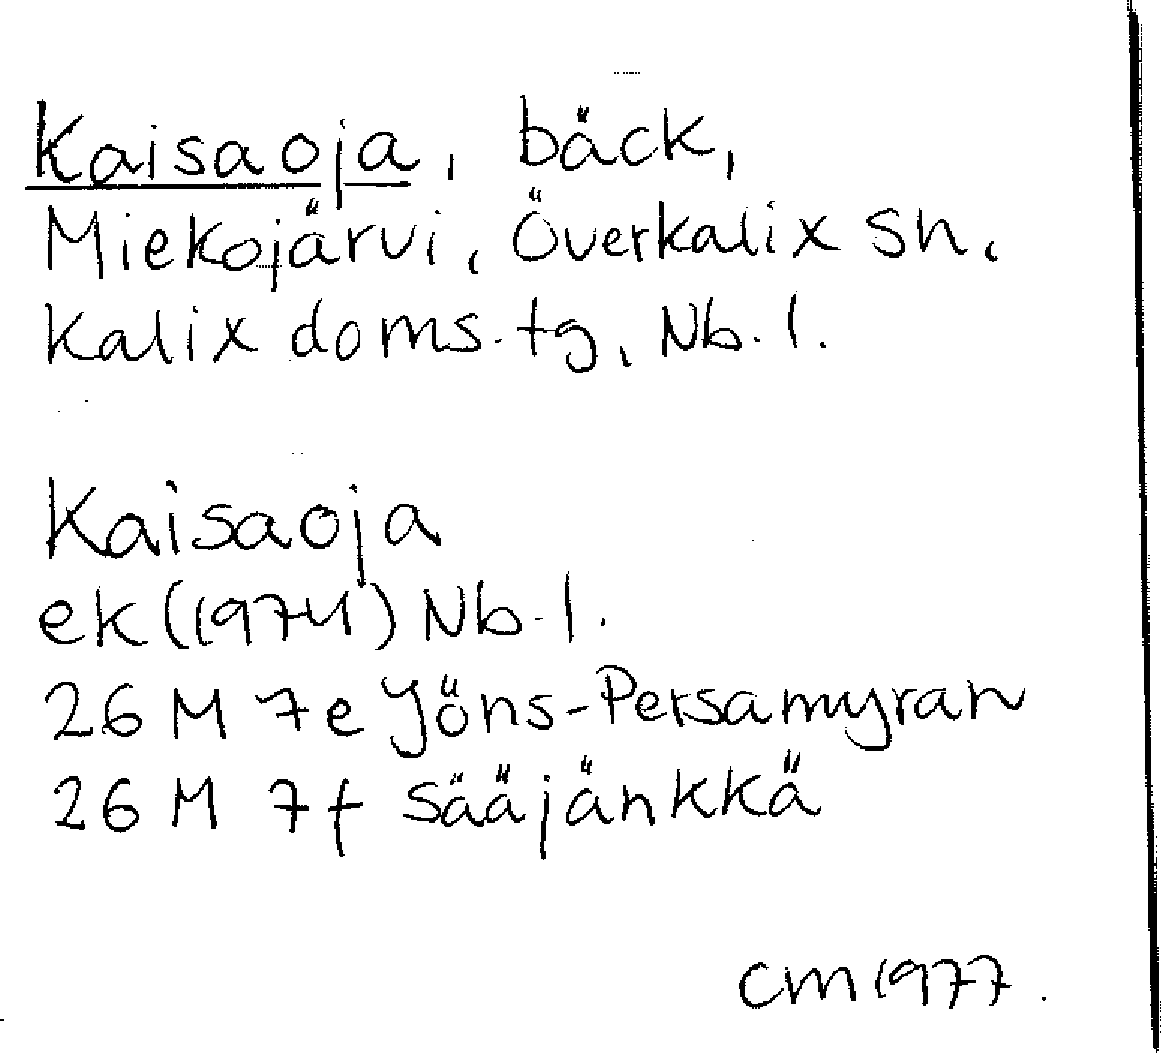 Kaisaoja, bäck,
Miekojärvi, Överkalix sn,
Kalix doms.tg, Nb.l.
Kaisaoja
ek (1974) Nb.l.
26 M 7e Jöns-Persamyran
26 M 7f Sääjänkkä
CM 1977.